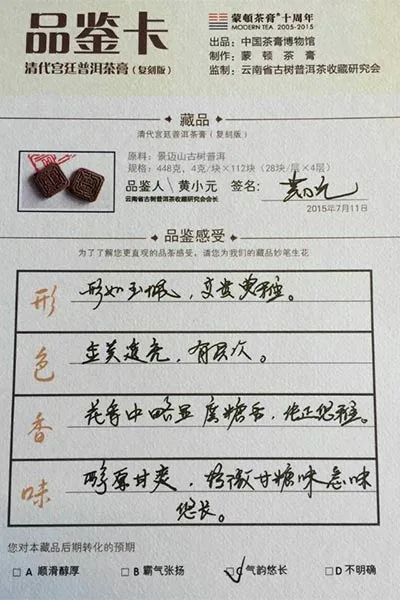 品鉴卡
清代宫廷普洱茶膏（复刻版）
蒙顿茶膏®十周年
MODERN TEA. 2005-2015
出品：中国茶膏博物馆
制作：蒙顿茶膏
监制：云南省古树普洱茶收藏研究会
藏品
清代宫廷普洱茶膏（复刻版）
原料：景迈山古树普洱
规格：448克，4克/块×112块（28块/层×4层）
品鉴人\黄小元 签名：
云南省古树普洱茶收藏研究会会长
2015年7月11日
品鉴感受
为了了解您更直观的品茶感受，请您为我们的藏品妙笔生花
形 形如玉佩，
色 有层次。
香 花香中略显 糖香，纯正悠雅。
味 醇厚甘爽，稍微甘糖味
悠长。
您对本藏品后期转化的预期
□A 顺滑醇厚 □B 霸气张扬 □C 气韵悠长 □D 不明确